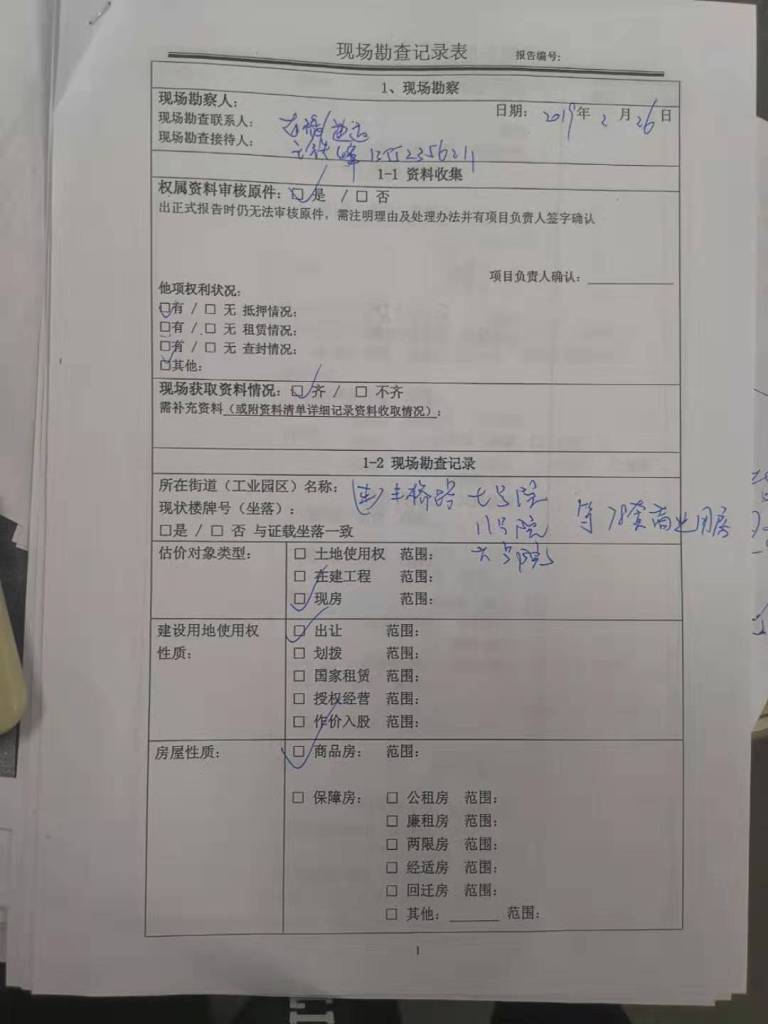 现场勘查记录表 报告编号:
1、现场勘察
现场勘察人:
日期: 2019年 2 月 26 日
现场勘查联系人:
现场勘查接待人:
1-1 资料收集
权属资料审核原件: ☑ 是 / □ 否
出正式报告时仍无法审核原件，需注明理由及处理办法并有项目负责人签字确认
项目负责人确认: ________
他项权利状况:
☑有 / □ 无 抵押情况:
□有 / □ 无 租赁情况:
☑有 / □ 无 查封情况:
□其他:
现场获取资料情况: ☑ 齐 / □ 不齐
需补充资料（或附资料清单详细记录资料收取情况）:
1-2 现场勘查记录
所在街道（工业园区）名称: 丰桥路 七号院
现状楼牌号（坐落）: 八号院 等 78套商业用房
□是 / □ 否 与证载坐落一致
六号院
估价对象类型: □ 土地使用权 范围:
□ 在建工程 范围:
☑ 现房 范围:
建设用地使用权 ☑ 出让 范围:
性质: □ 划拨 范围:
□ 国家租赁 范围:
□ 授权经营 范围:
□ 作价入股 范围:
房屋性质: ☑ 商品房: 范围:
□ 保障房: □ 公租房 范围:
□ 廉租房 范围:
□ 两限房 范围:
□ 经适房 范围:
□ 回迁房 范围:
□ 其他: ______ 范围:
1